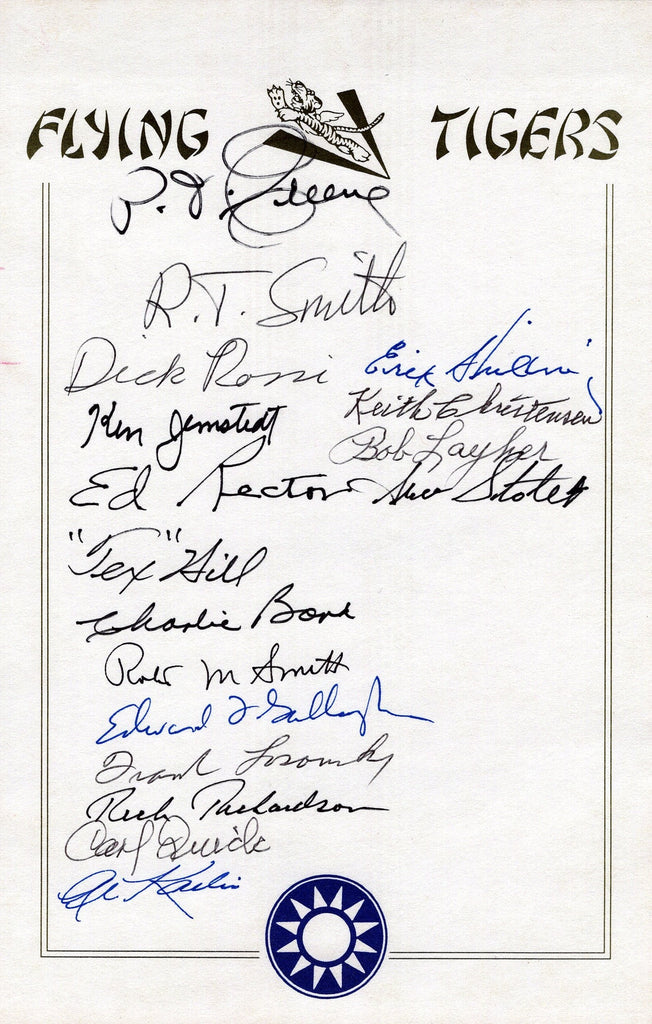 FLYING TIGERS
P. J. Greene
R.T. Smith
Dick Rossi
Erik Shilling
Ken Jernstedt
Keith Christensen
Bob Layher
Ed Rector
"Tex" Hill
Charlie Bond
Robt M Smith
Edward F Gallagher
Frank Losonsky
Rich Richardson
Carl Quick